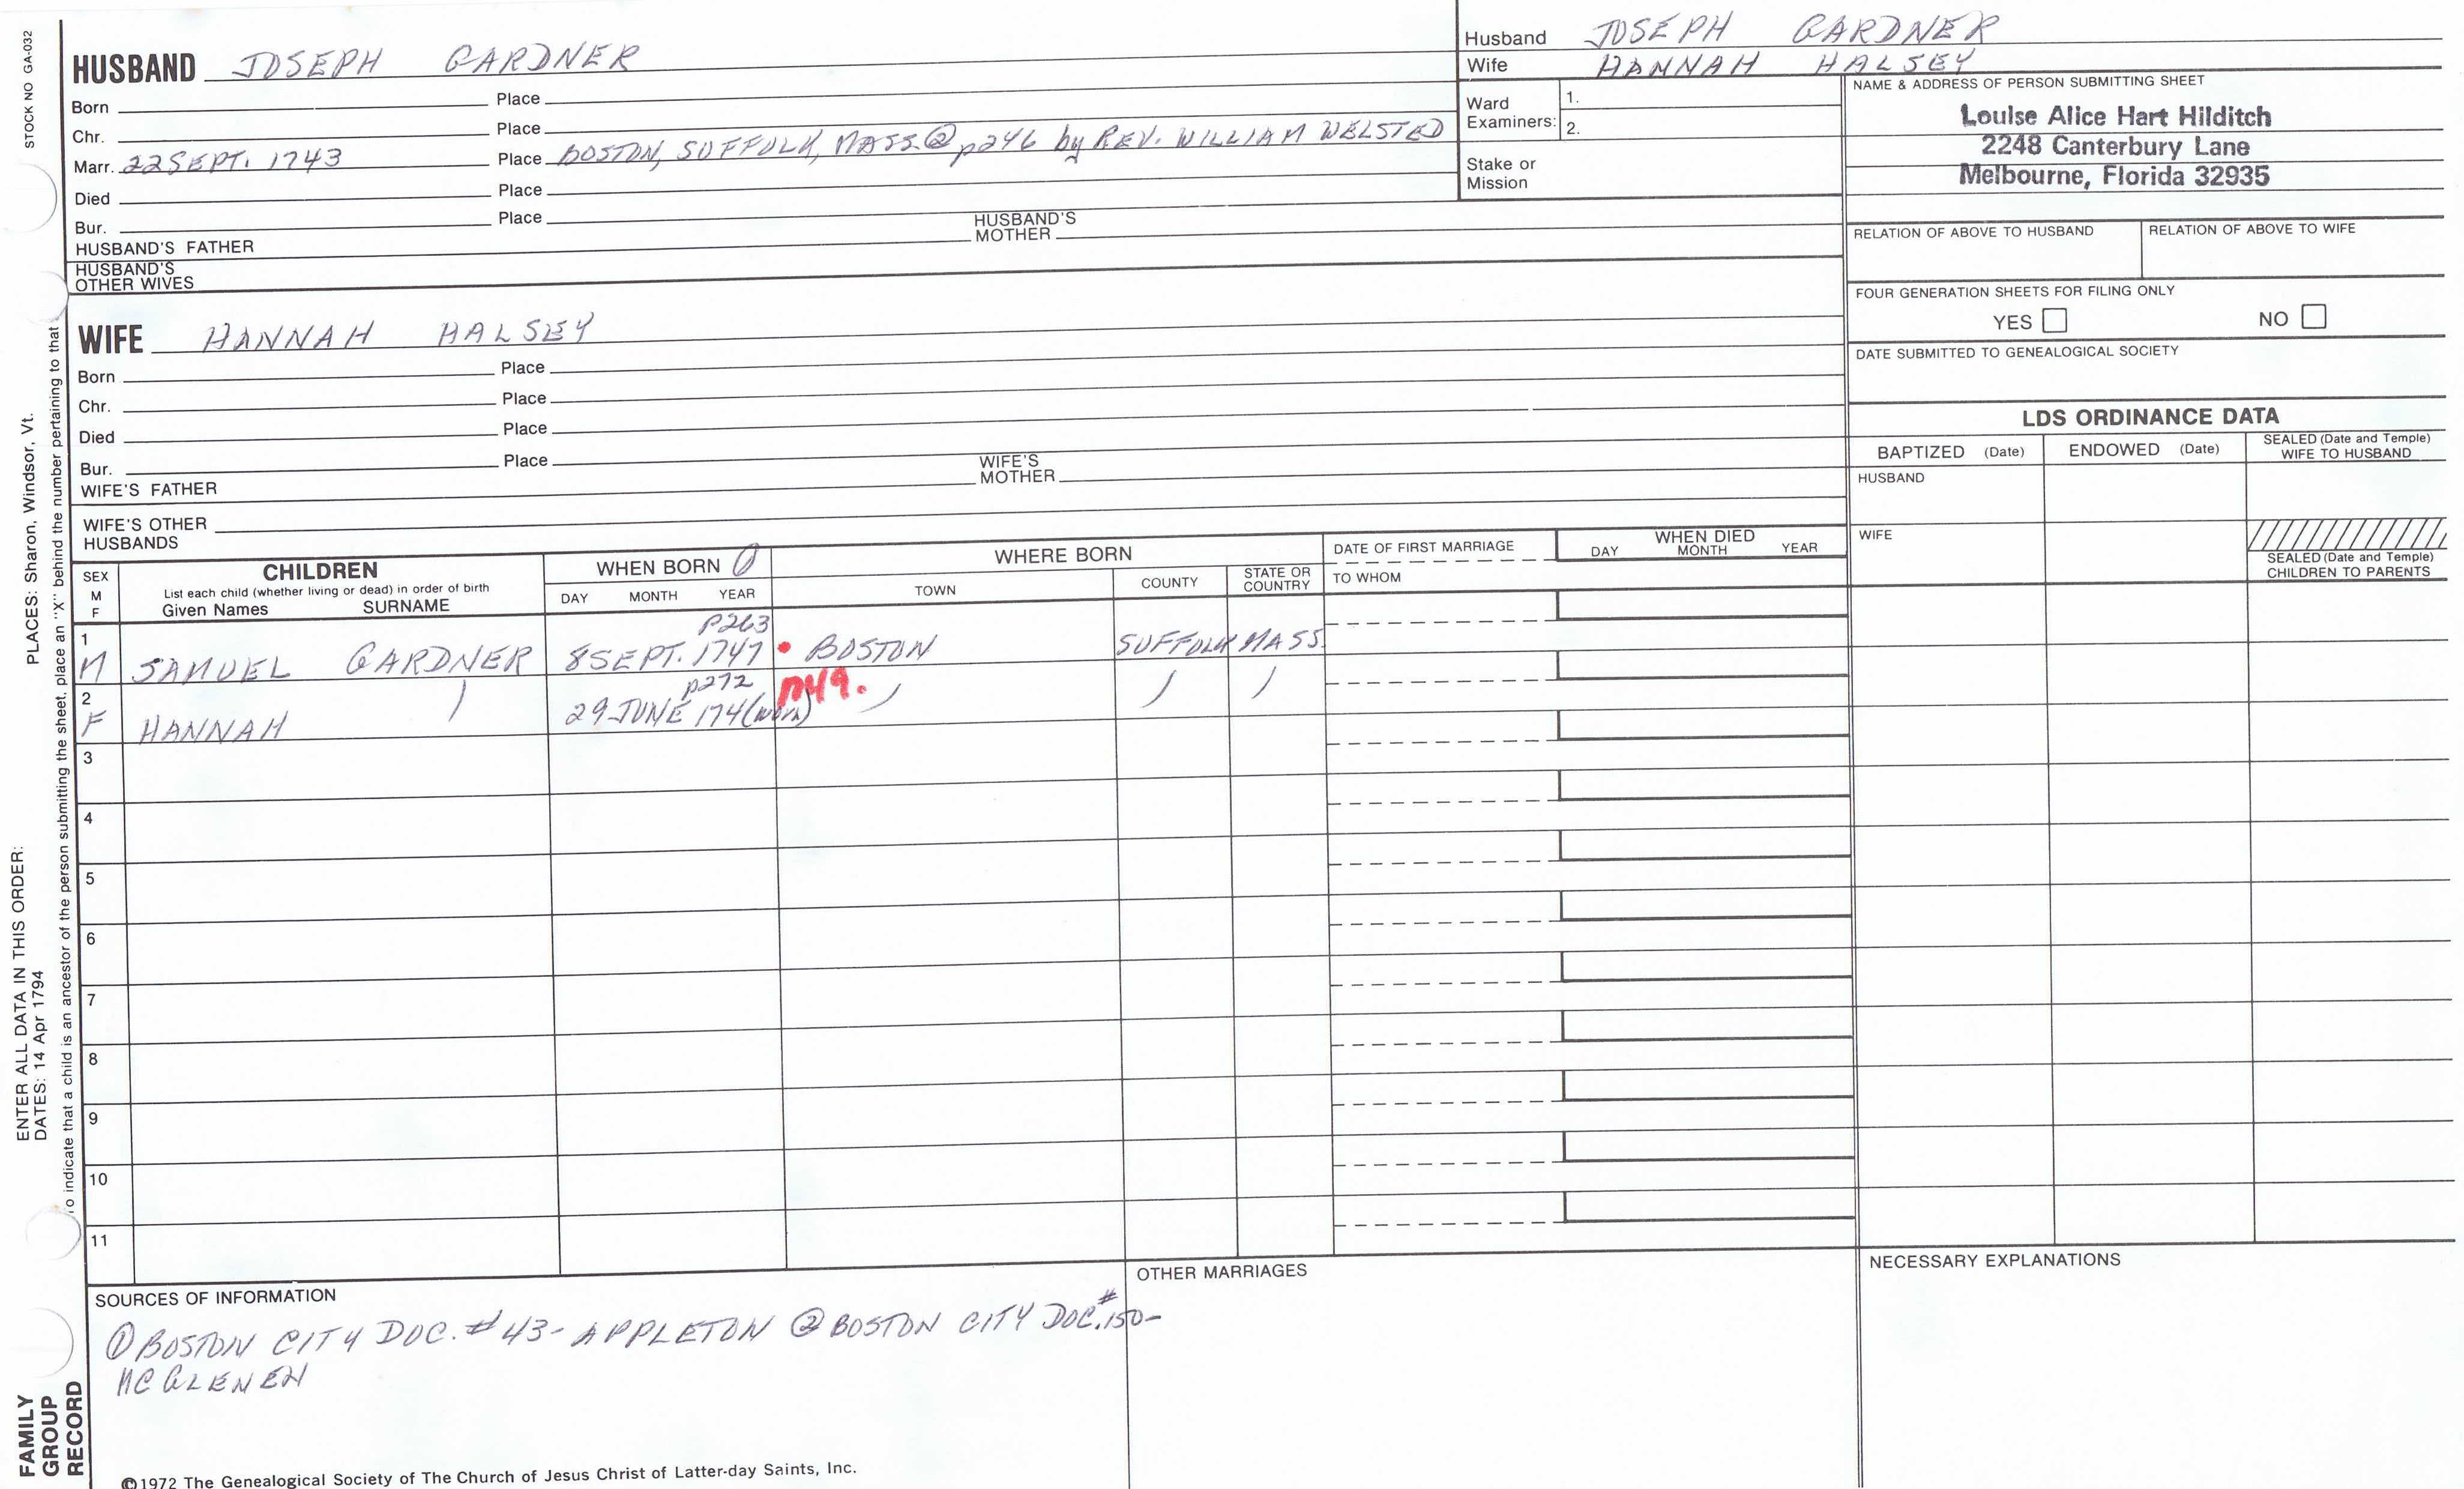 STOCK NO GA-032
PLACES: Sharon, Windsor, Vt.
ENTER ALL DATA IN THIS ORDER:
DATES: 14 Apr 1794
To indicate that a child is an ancestor of the person submitting the sheet, place an "X" behind the number pertaining to that
FAMILY
GROUP
RECORD
HUSBAND JOSEPH GARDNER
Born Place
Chr. Place
Marr. 22 SEPT. 1743 Place BOSTON, SUFFOLK, MASS. ② p246 by REV. WILLIAM WELSTED
Died Place
Bur. Place
HUSBAND'S FATHER HUSBAND'S MOTHER
HUSBAND'S
OTHER WIVES
Husband JOSEPH GARDNER
Wife HANNAH HALSEY
Ward
Examiners: 1.
2.
Stake or
Mission
NAME & ADDRESS OF PERSON SUBMITTING SHEET
Louise Alice Hart Hilditch
2248 Canterbury Lane
Melbourne, Florida 32935
RELATION OF ABOVE TO HUSBAND RELATION OF ABOVE TO WIFE
FOUR GENERATION SHEETS FOR FILING ONLY
YES NO
DATE SUBMITTED TO GENEALOGICAL SOCIETY
WIFE HANNAH HALSEY
Born Place
Chr. Place
Died Place
Bur. Place
WIFE'S FATHER WIFE'S MOTHER
WIFE'S OTHER
HUSBANDS
LDS ORDINANCE DATA
BAPTIZED (Date) ENDOWED (Date) SEALED (Date and Temple) WIFE TO HUSBAND
HUSBAND
WIFE
SEALED (Date and Temple)
CHILDREN TO PARENTS
SEX
M
F
CHILDREN
List each child (whether living or dead) in order of birth
Given Names SURNAME
WHEN BORN ①
DAY MONTH YEAR
WHERE BORN
TOWN COUNTY STATE OR COUNTRY
DATE OF FIRST MARRIAGE
TO WHOM
WHEN DIED
DAY MONTH YEAR
p263
1 M SAMUEL GARDNER 8 SEPT. 1747 BOSTON SUFFOLK MASS.
p272
2 F HANNAH 29 JUNE 174(worn)
3
4
5
6
7
8
9
10
11
SOURCES OF INFORMATION
① BOSTON CITY DOC. #43- APPLETON ② BOSTON CITY DOC. #150-
MCGLENEN
OTHER MARRIAGES
NECESSARY EXPLANATIONS
©1972 The Genealogical Society of The Church of Jesus Christ of Latter-day Saints, Inc.